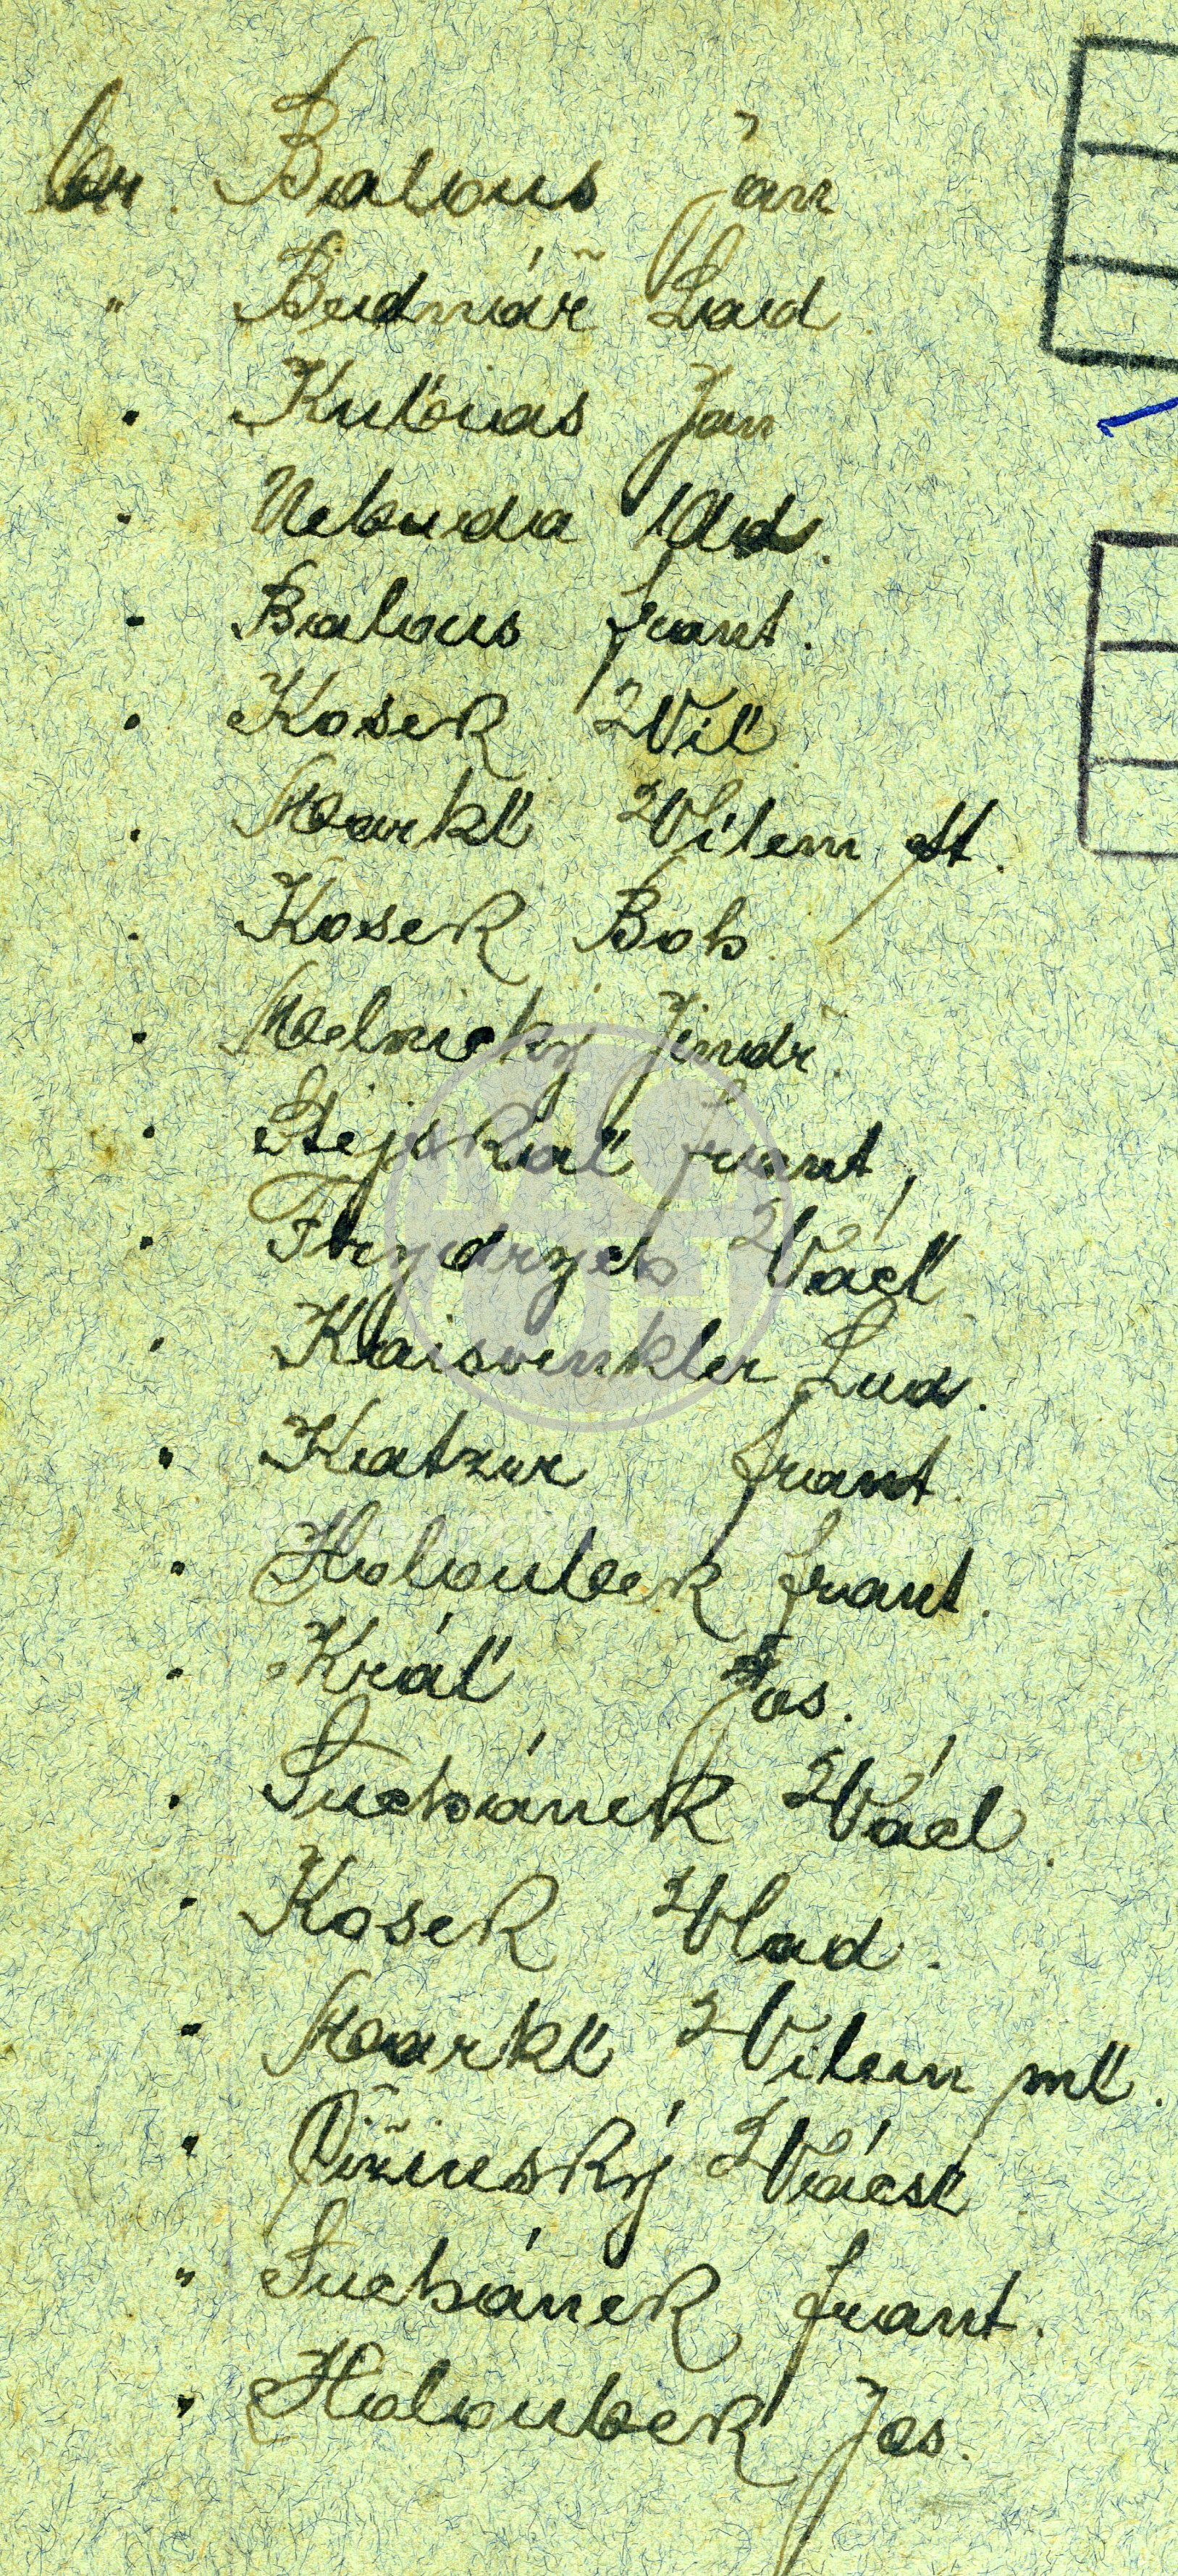 br. Balous Jan
" Bednář Lad
" Kubias Jan
" Nebuda Vlad.
" Balous Frant.
" Kosek Vil.
" Markl Vilem st.
" Kosek Boh.
" Melnický Jindř.
" Stejskal Frant.
" Frydrych Václ.
" Kraisvinkler Lud.
" Katzur Frant.
" Holoubek Frant.
" Král Jos.
" Suchánek Václ.
" Kosek Vlad.
" Markl Vilem ml.
" Vácsl.
" Suchánek Frant.
" Holoubek Jos.